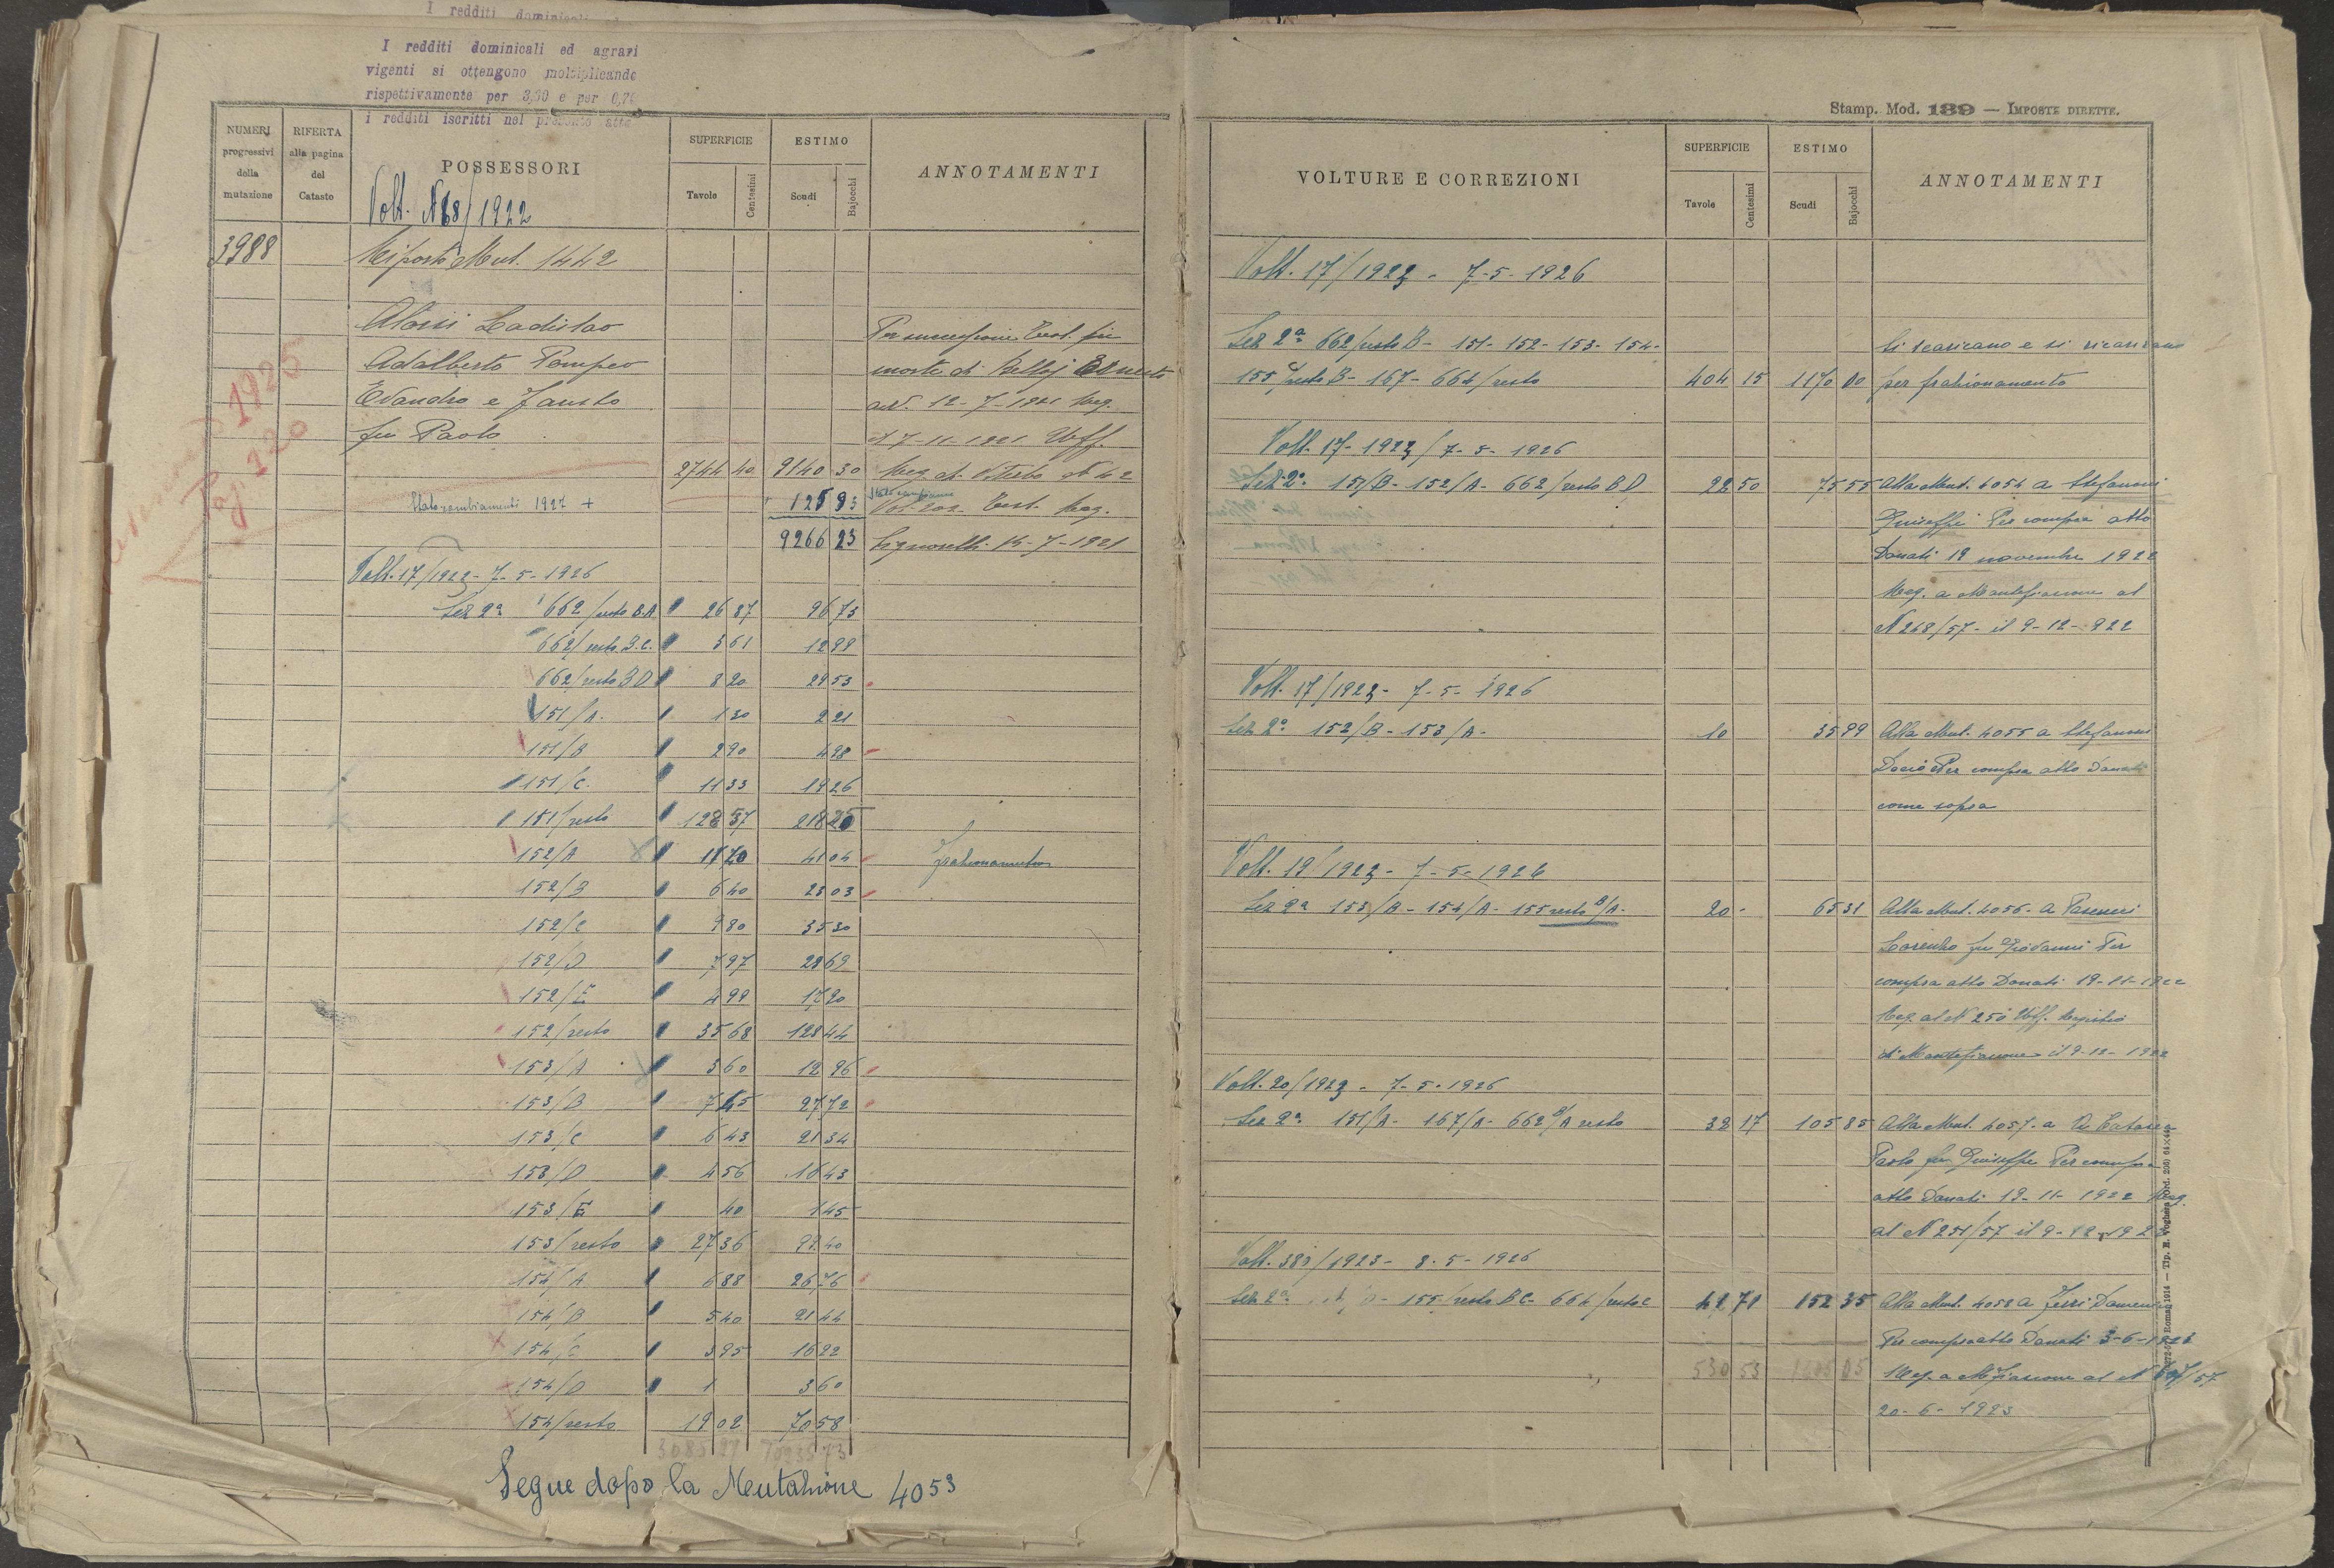 I redditi dominicali ed
I redditi dominicali ed agrari
vigenti si ottengono moltiplicando
rispettivamente per 3,90 e per 0,70
i redditi iscritti nel presente atto
NUMERI progressivi della mutazione
RIFERTA alla pagina del Catasto
POSSESSORI
SUPERFICIE
Tavole Centesimi
ESTIMO
Scudi Bajocchi
ANNOTAMENTI
Volt. N 68/1922
3988 Riporto Mut. 1442
Aloisi Ladislao Per successione
Adalberto Pompeo morte di Ernesto
Evandro e Fausto 12-7-1921 Reg.
fu Paolo 7-11-1921 Uff.
2744 40 9140 30 Reg. di Viterbo N 42
Stato cambiamenti 1927 + 125 93
9266 23 Signorelli 14-7-1921
1925
Pag. 120
Volt. 17/1923 - 7-5-1926
Sez 2a 662/resto B.A 26 87 96 73
662/resto B.C. 3 61 12 99
662/resto B D 8 20 29 53
151/A. 1 30 2 21
151/B 2 90 4 98
151/C. 11 33 19 26
151/resto 128 37 218 25
152/A 11 70 41 04 frazionamento
152/B 6 40 23 03
152/C 9 80 35 30
152/D 7 97 28 69
152/E 4 99 17 20
152/resto 35 68 128 44
153/A 3 60 12 96
153/B 7 65 27 72
153/C 6 43 21 34
153/D 4 56 16 43
153/E 40 1 45
153/resto 27 36 98 40
154/A 6 88 26 76
154/B 5 40 21 44
154/C 3 95 16 22
154/D 1 3 60
154/resto 19 02 70 58
Segue dopo la Mutazione 4053
Stamp. Mod. 139 — IMPOSTE DIRETTE.
VOLTURE E CORREZIONI
SUPERFICIE
Tavole Centesimi
ESTIMO
Scudi Bajocchi
ANNOTAMENTI
Volt. 17/1923 - 7-5-1926
Sez 2a 662/resto B - 151 - 152 - 153 - 154 - Si scaricano e si ricaricano
155/resto B - 167 - 664/resto 404 15 1170 00 per frazionamento
Volt. 17-1923/7-5-1926
Sez 2a 151/B - 152/A - 662/resto B D 22 50 75 55 Alla Mut. 4054 a Stefanoni
Giuseppe Per compra atto
Donati 19 novembre 1922
Reg. a Montefiascone al
N 248/57 - il 9-12-922
Volt. 17/1923 - 7-5-1926
Sez 2a 152/B - 153/A - 10 35 99 Alla Mut. 4055 a Stefanoni
Decio Per compra atto Donati
come sopra
Volt. 19/1923 - 7-5-1926
Sez 2a 153/B - 154/A - 155 resto B/A - 20 - 65 31 Alla Mut. 4056 - a
Lorenzo fu Giovanni Per
compra atto Donati 19-11-1922
Reg. al N 250 Uff. Registro
di Montefiascone il 9-12-1922
Volt. 20/1923 - 7-5-1926
Sez 2a 151/A - 167/A - 662 B/A resto 32 17 105 85 Alla Mut. 4057 - a
Paolo fu Giuseppe Per compra
atto Donati 19-11-1922 Reg.
al N 251/57 il 9-12-1922
Volt. 383/1923 - 8-5-1926
Sez 2a 155/resto B C - 664/resto C 41 71 152 35 Alla Mut. 4058 a Ferri Domenico
Per compra atto Donati 3-6-1923
530 53 Reg. a Mfiascone al N
20-6-1923
Roma, 1914 — Tip. E. Voghera